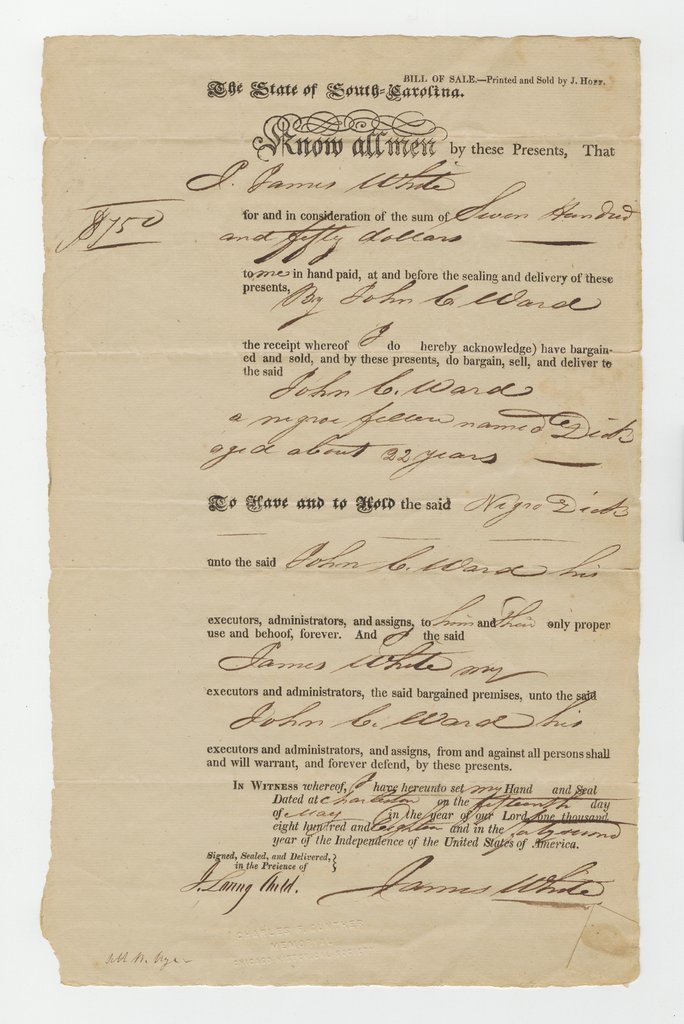 BILL OF SALE.—Printed and Sold by J. Hoff.
The State of South-Carolina.
Know all men by these Presents, That
I. James White
$750
for and in consideration of the sum of Seven Hundred
and fifty dollars
to me in hand paid, at and before the sealing and delivery of these
presents,
By John C Ward
the receipt whereof I do hereby acknowledge) have bargain-
ed and sold, and by these presents, do bargain, sell, and deliver to
the said
John C. Ward
a negroe fellow named Dick
aged about 22 years
To Have and to Hold the said Negro Dick
unto the said John C. Ward his
executors, administrators, and assigns, to him and their only proper
use and behoof, forever. And I the said
James White my
executors and administrators, the said bargained premises, unto the said
John C. Ward his
executors and administrators, and assigns, from and against all persons shall
and will warrant, and forever defend, by these presents.
IN WITNESS whereof, I have hereunto set my Hand and Seal
Dated at Charleston on the fifteenth day
of May in the year of our Lord, one thousand
eight hundred and Eighteen and in the forty second
year of the Independence of the United States of America.
Signed, Sealed, and Delivered, }
in the Presence of }
J. Laring Child.
James White
CHARLES F. GUNTHER
MEMORIAL
CHICAGO HISTORICAL SOCIETY